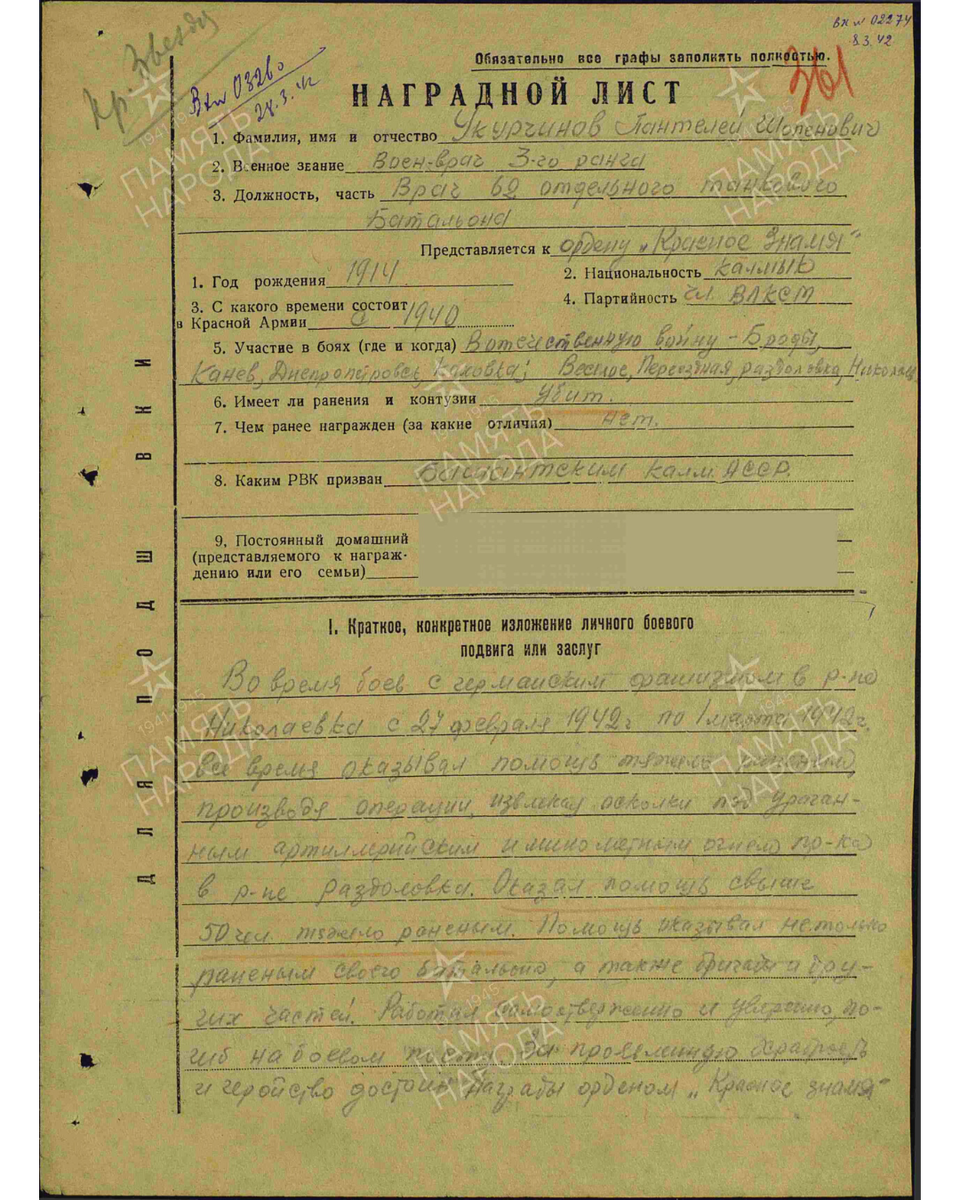 Вх № 02274
8.3.42
Кр. Звезду
Вх № 0326
28.3.42
Обязательно все графы заполнять полностью.
НАГРАДНОЙ ЛИСТ
1. Фамилия, имя и отчество Укурчинов Пантелей
2. Военное звание Воен-врач 3-го ранга
3. Должность, часть Врач 62 отдельного танкового
Батальона
Представляется к ордену „Красное Знамя"
1. Год рождения 1914
2. Национальность калмык
3. С какого времени состоит
в Красной Армии с 1940
4. Партийность чл. ВЛКСМ
5. Участие в боях (где и когда) В отечественную войну - Броды,
Канев, Днепропетровск, Каховка; Веселое, Переездная, раздоловка, Николаевка
6. Имеет ли ранения и контузии Убит.
7. Чем ранее награжден (за какие отличия) нет.
8. Каким РВК призван Калм. АССР.
9. Постоянный домашний
(представляемого к награж-
дению или его семьи)
ДЛЯ ПОДШИВКИ
I. Краткое, конкретное изложение личного боевого
подвига или заслуг
Во время боев с германским фашизмом в р-не
Николаевка с 27 февраля 1942г по 1 марта 1942г.
все время оказывал помощь тяжело раненым,
производя операции, извлекая осколки под ураган-
ным артиллерийским и минометным огнем пр-ка
в р-не Раздоловка. Оказал помощь свыше
50 чел. тяжело раненым. Помощь оказывал не только
раненым своего батальона, а также бригады и дру-
гих частей. Работал самоотверженно и уверенно, по-
гиб на боевом посту. За проявленную храбрость
и геройство достоин награды орденом „Красное знамя"
ПАМЯТЬ
НАРОДА
1941-1945